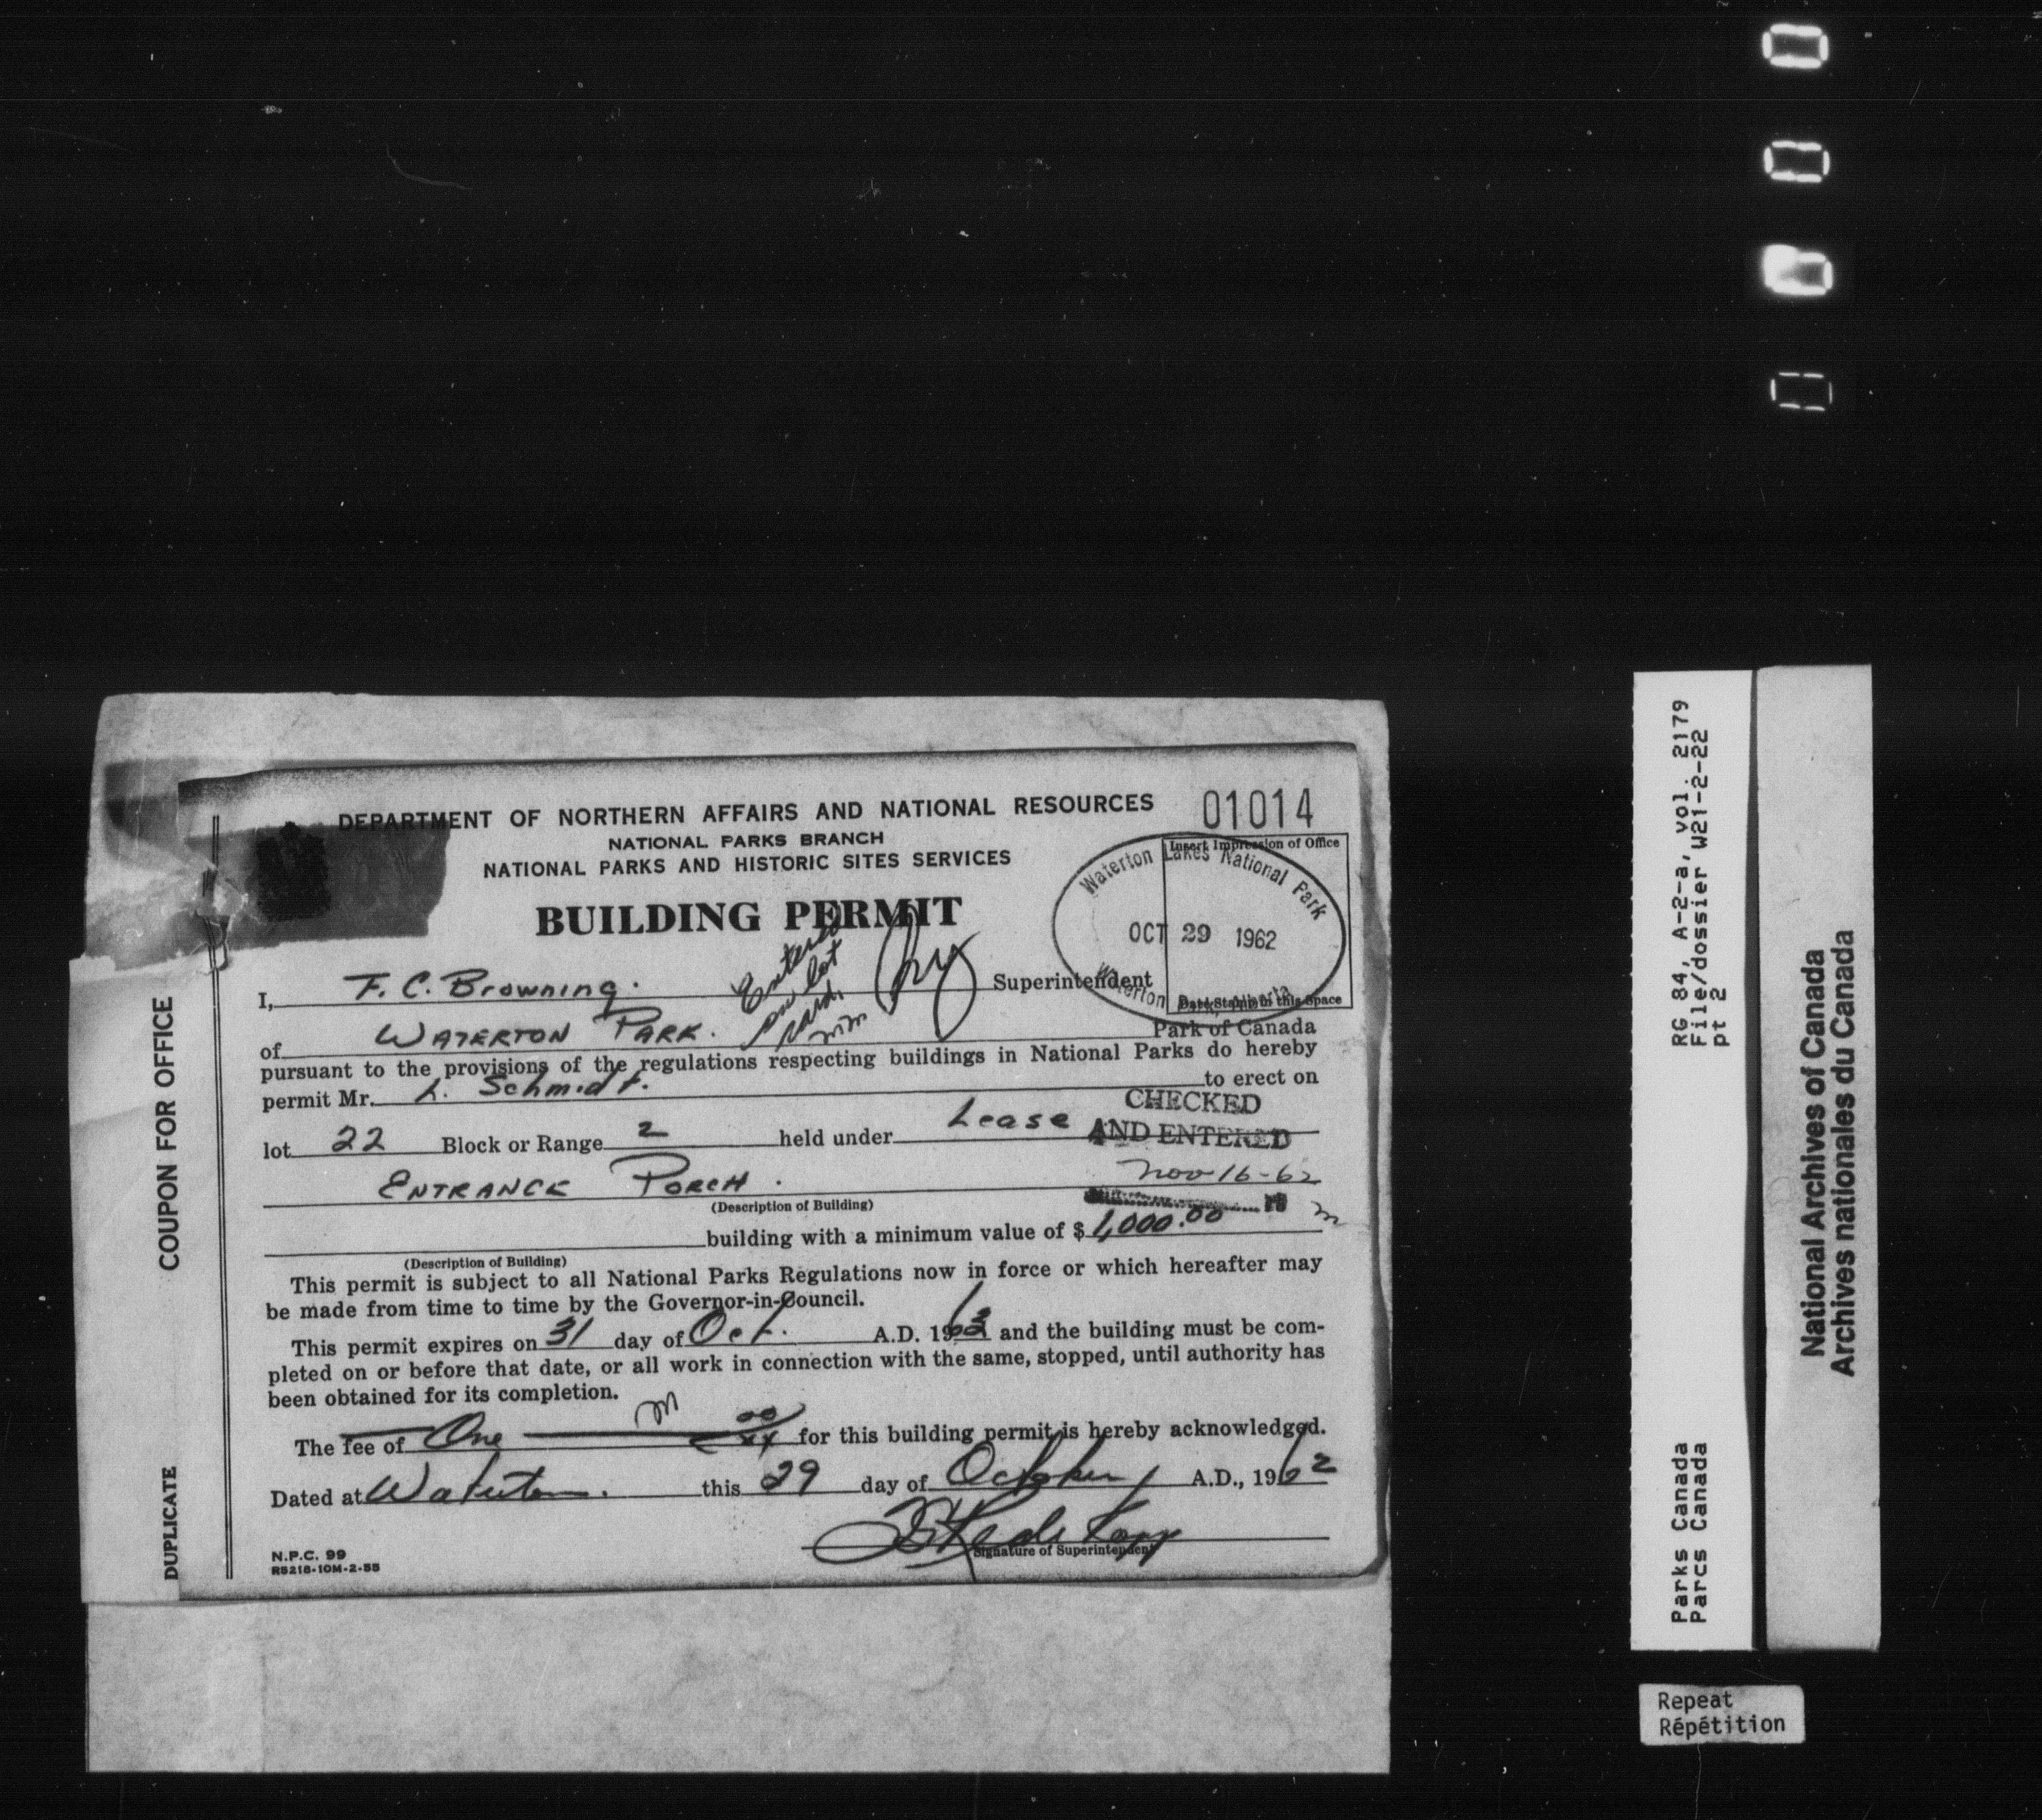 DEPARTMENT OF NORTHERN AFFAIRS AND NATIONAL RESOURCES
01014
NATIONAL PARKS BRANCH
NATIONAL PARKS AND HISTORIC SITES SERVICES
Insert Impression of Office
Waterton Lakes National Park
OCT 29 1962
Waterton Park, Alberta
Date Stamp in this Space
BUILDING PERMIT
Entered
on lot
card,
mm
I, F. C. Browning. Superintendent
of WATERTON PARK. Park of Canada
pursuant to the provisions of the regulations respecting buildings in National Parks do hereby
permit Mr. L. Schmidt. to erect on
CHECKED
AND ENTERED
Nov 16-62
lot 22 Block or Range 2 held under Lease
ENTRANCE PORCH.
(Description of Building)
building with a minimum value of $ 1,000.00
(Description of Building)
This permit is subject to all National Parks Regulations now in force or which hereafter may
be made from time to time by the Governor-in-Council.
This permit expires on 31 day of Oct. A.D. 1963 and the building must be com-
pleted on or before that date, or all work in connection with the same, stopped, until authority has
been obtained for its completion.
The fee of One 00/xx for this building permit is hereby acknowledged.
Dated at Waterton. this 29 day of October A.D., 1962
Signature of Superintendent
N.P.C. 99
R5218-10M-2-55
COUPON FOR OFFICE
DUPLICATE
RG 84, A-2-a, vol. 2179
File/dossier W21-2-22
pt 2
Parks Canada
Parcs Canada
National Archives of Canada
Archives nationales du Canada
Repeat
Répétition